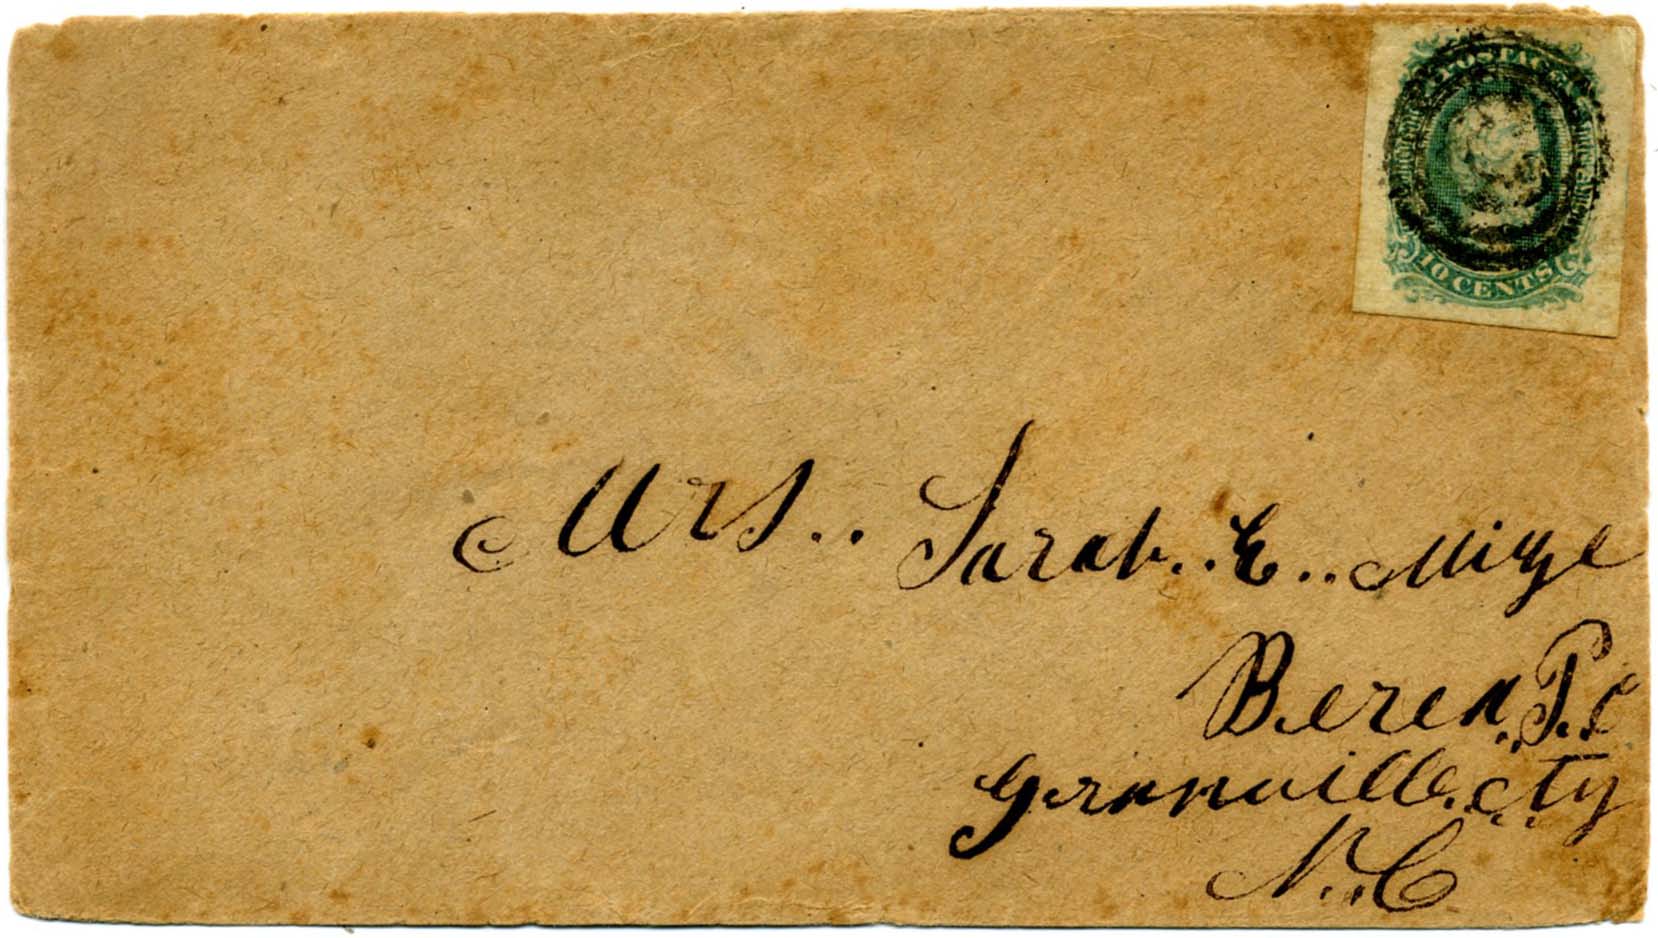 POSTAGE
10 CENTS
Mrs.. Sarah..E..Mize
Berea, P.O
Granville..cty
N..C